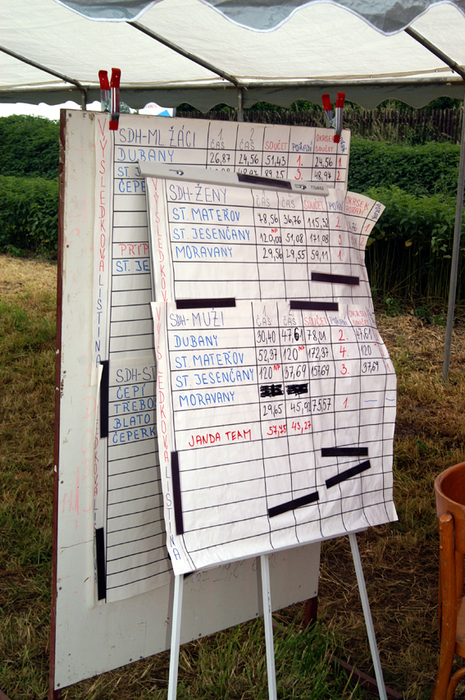 SDH-ML ŽÁCI 1 ČAS 2 ČAS SOUČET POŘADÍ OKRSEK SOUČET
DUBANY 26,87 24,56 51,43 1. 24,56 1.
ST. 3. 48,94
ČEPE
ST. JE
VÝSLEDKOVÁ LISTINA
SDH-ŽENY ČAS ČAS SOUČET
ST. MATEŘOV 78,56 36,76 115,32 2.
ST. JESENČANY 120,00 NP 51,08 171,08 3
MORAVANY 29,56 29,55 59,11 1.
SDH-MUŽI ČAS ČAS SOUČET
DUBANY 30,40 47,61 78,01 2. 47,61
ST MATEŘOV 52,37 120 NP 172,37 4. 120
ST. JESENČANY 120 NP 37,69 157,69 3. 37,69
MORAVANY
29,65 45,92 75,57 1
JANDA TEAM 57,75 43,27
VÝSLEDKOVÁ LISTINA
SDH-ST
ČEPÍ
TŘEBO
BLATO
ČEPERK